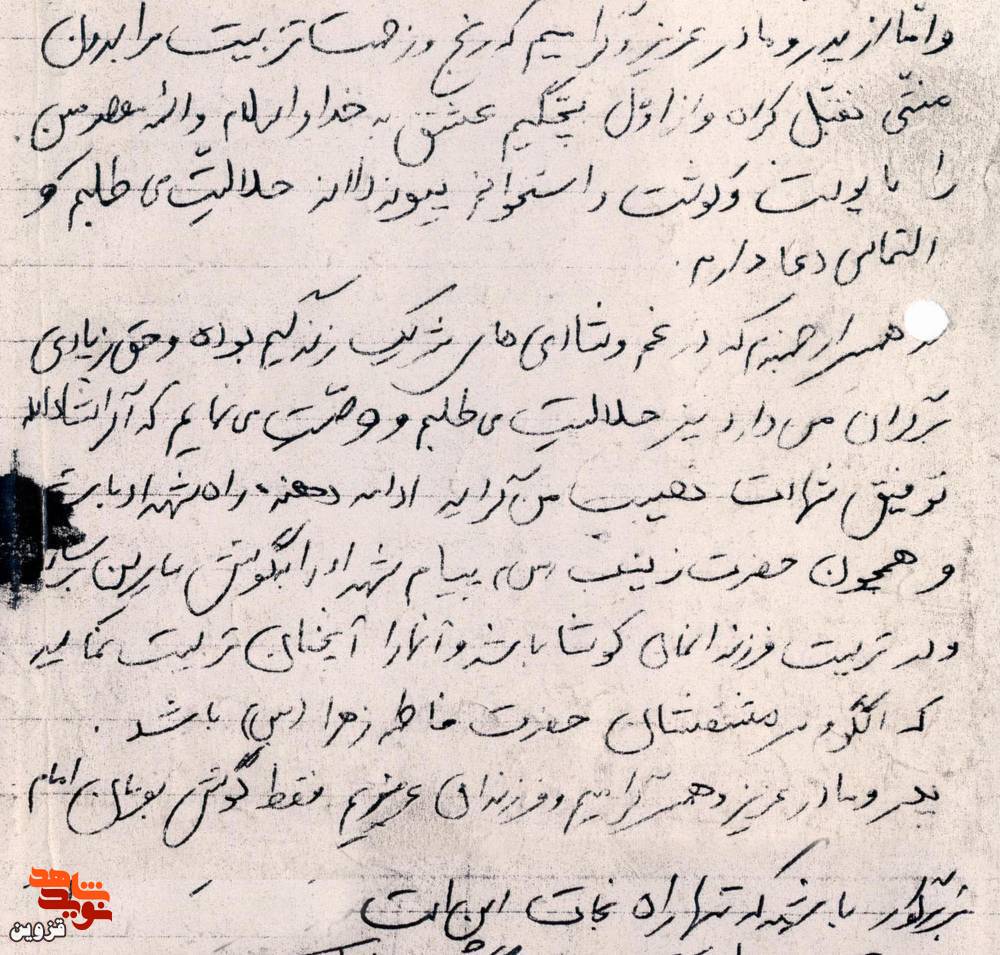 و امّا از پدر و مادر عزیز و گرامیم که رنج و زحمت تربیت مرا بدون
منتّی تقبّل کرده و از اوّل بچگیم عشق به خدا و اسلام و ائمه معصومین
را با پوست و گوشت و استخوانم پیوند داده حلالیّت می طلبم و
التماس دعا دارم.
همسر ارجمندم که در غم و شادی های شریک زندگیم بوده و حق زیادی
بر گردن من دارد نیز حلالیّت می طلبم و وصیّت می نمایم که اگر انشاءالله
توفیق شهادت نصیب من گردید ادامه دهنده راه شهداء باشد
و همچون حضرت زینب (س) پیام شهداء را بگوش سایرین برساند
و در تربیت فرزندانمان کوشا باشد و آنها را آنچنان تربیت نماید
که الگو و سرمشقشان حضرت فاطمه زهرا (س) باشد.
پدر و مادر عزیز و همسر گرامیم و فرزندان عزیزم فقط گوش بفرمان امام
بزرگوار باشید که تنها راه نجات این است
شاهد
نوید
قزوین